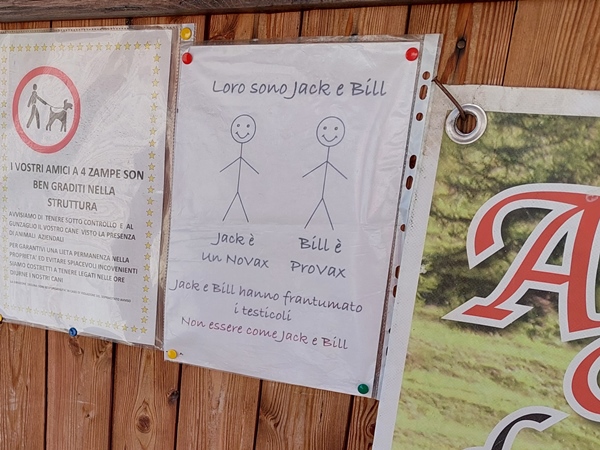 I VOSTRI AMICI A 4 ZAMPE SON
BEN GRADITI NELLA
STRUTTURA
AVVISIAMO DI TENERE SOTTO CONTROLLO E AL
GUNZAGLIO IL VOSTRO CANE VISTO LA PRESENZA
DI ANIMALI AZIENDALI
PER GARANTIVI UNA LIETA PERMANENZA NELLA
PROPRIETA' ED EVITARE SPIACEVOLI INCOVENIENTI
SIAMO COSTRETTI A TENERE LEGATI NELLE ORE
DIURNE I NOSTRI CANI
Loro sono Jack e Bill
Jack è
un NoVax
Bill è
ProVax
Jack e Bill hanno frantumato
i testicoli
Non essere come Jack e Bill
A